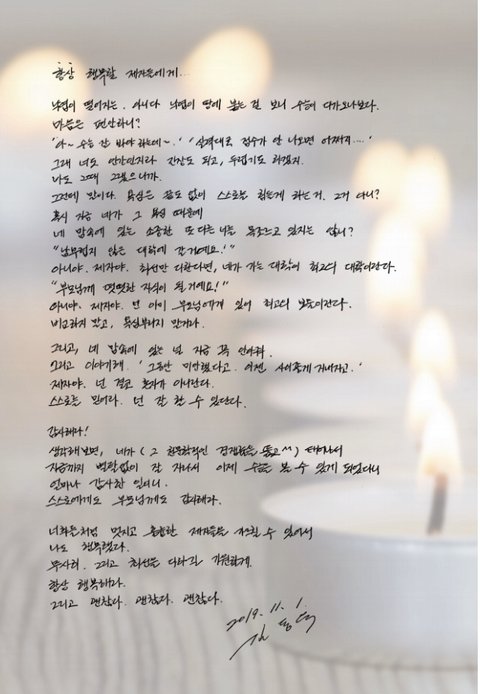 항상 행복할 제자들에게...
낙엽이 떨어지는. 아니다 낙엽이 땅에 붙는걸 보니 수능이 다가오나보다.
마음은 편안하니?
'아~ 수능 잘 봐야 하는데~.' '생각대로 점수가 안 나오면 어쩌지....'
그래 너도 인간인지라 긴장도 되고, 두렵기도 하겠지.
나도 그때 그랬으니까.
그런데 말이다. 욕심은 끝도 없이 스스로를 힘들게 하는거. 그거 아니?
혹시 지금 네가 그 욕심 때문에
네 맘속에 있는 소중한 또 다른 너를 목조르고 있지는 않니?
"남부럽지 않은 대학에 갈거예요!"
아니야. 제자야. 최선만 다한다면, 네가 가는 대학이 최고의 대학이란다.
"부모님께 떳떳한 자식이 될거예요!"
아니야. 제자야. 넌 이미 부모님에게 있어 최고의 보물이란다.
비교하지 말고, 욕심부리지 말거라.
그리고, 네 맘속에 있는 널 지금 꼭 안아줘.
그리고 이야기해. '그동안 미안했다고. 이젠 사이좋게 지내자고.'
제자야. 넌 결코 혼자가 아니란다.
스스로를 믿어라. 넌 잘 할 수 있단다.
감사해라!
생각해보면, 네가 ( 그 천문학적인 경쟁률을 뚫고^^ ) 태어나서
지금까지 별탈없이 잘 자라서 이제 수능을 볼 수 있게 되었다니
얼마나 감사한 일이니.
스스로에게도 부모님께도 감사해라.
너희들처럼 멋지고 훌륭한 제자들을 가르칠 수 있어서
나도 행복했다.
무사히. 그리고 최선을 다하길 기원할게.
항상 행복해라.
그리고 괜찮다. 괜찮다. 괜찮다.
2019. 11. 1.